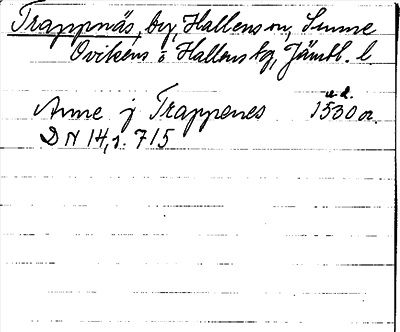 Trappnäs, by, Hallens sn, Sunne
Ovikens o Hallens tg, Jämtl. l.
u.d.
Anne j Trappenes 1530 a.
DN 14, s. 715